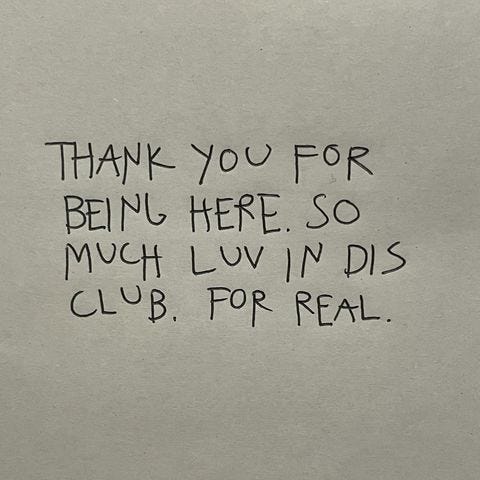 THANK YOU FOR
BEING HERE. SO
MUCH LUV IN DIS
CLUB. FOR REAL.